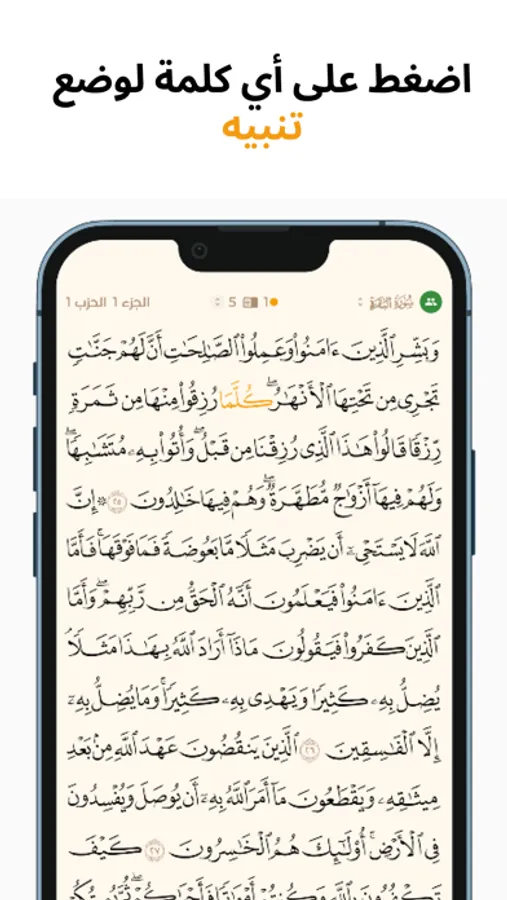 اضغط على أي كلمة لوضع
تنبيه
سُورَةُ البَقَرَةِ 1 5 الجزء 1 الحزب 1
وَبَشِّرِ ٱلَّذِينَ ءَامَنُوا۟ وَعَمِلُوا۟ ٱلصَّـٰلِحَـٰتِ أَنَّ لَهُمْ جَنَّـٰتٍ
تَجْرِى مِن تَحْتِهَا ٱلْأَنْهَـٰرُ ۖ كُلَّمَا رُزِقُوا۟ مِنْهَا مِن ثَمَرَةٍ
رِّزْقًا قَالُوا۟ هَـٰذَا ٱلَّذِى رُزِقْنَا مِن قَبْلُ ۖ وَأُتُوا۟ بِهِۦ مُتَشَـٰبِهًا ۖ
وَلَهُمْ فِيهَآ أَزْوَٰجٌ مُّطَهَّرَةٌ ۖ وَهُمْ فِيهَا خَـٰلِدُونَ ٢٥ ۞ إِنَّ
ٱللَّهَ لَا يَسْتَحْىِۦٓ أَن يَضْرِبَ مَثَلًا مَّا بَعُوضَةً فَمَا فَوْقَهَا ۚ فَأَمَّا
ٱلَّذِينَ ءَامَنُوا۟ فَيَعْلَمُونَ أَنَّهُ ٱلْحَقُّ مِن رَّبِّهِمْ ۖ وَأَمَّا
ٱلَّذِينَ كَفَرُوا۟ فَيَقُولُونَ مَاذَآ أَرَادَ ٱللَّهُ بِهَـٰذَا مَثَلًا ۘ
يُضِلُّ بِهِۦ كَثِيرًا وَيَهْدِى بِهِۦ كَثِيرًا ۚ وَمَا يُضِلُّ بِهِۦٓ
إِلَّا ٱلْفَـٰسِقِينَ ٢٦ ٱلَّذِينَ يَنقُضُونَ عَهْدَ ٱللَّهِ مِنۢ بَعْدِ
مِيثَـٰقِهِۦ وَيَقْطَعُونَ مَآ أَمَرَ ٱللَّهُ بِهِۦٓ أَن يُوصَلَ وَيُفْسِدُونَ
فِى ٱلْأَرْضِ ۚ أُو۟لَـٰٓئِكَ هُمُ ٱلْخَـٰسِرُونَ ٢٧ كَيْفَ
تَكْفُرُونَ بِٱللَّهِ وَكُنتُمْ أَمْوَٰتًا فَأَحْيَـٰكُمْ ۖ ثُمَّ يُمِيتُكُمْ